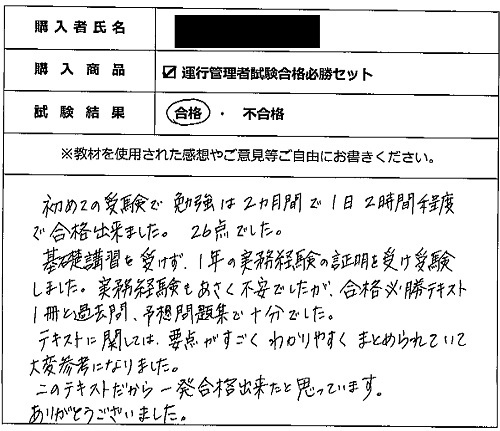 購入者氏名
購入商品 ☑ 運行管理者試験合格必勝セット
試験結果 合格 ・ 不合格
※教材を使用された感想やご意見等ご自由にお書きください。
初めての受験で 勉強は2カ月間で1日2時間程度
で合格出来ました。 26点でした。
基礎講習を受けず、1年の実務経験の証明を受け受験
しました。実務経験もあさく不安でしたが、合格必勝テキスト
1冊と過去問、予想問題集で十分でした。
テキストに関しては、要点がすごく わかりやすく まとめられていて
大変参考になりました。
このテキストだから 一発合格出来たと思っています。
ありがとうございました。